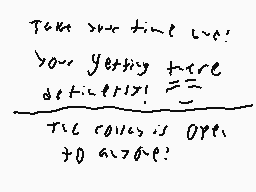 Take your time luv!
your getting there
definetly!
The collab is open
to anyone!